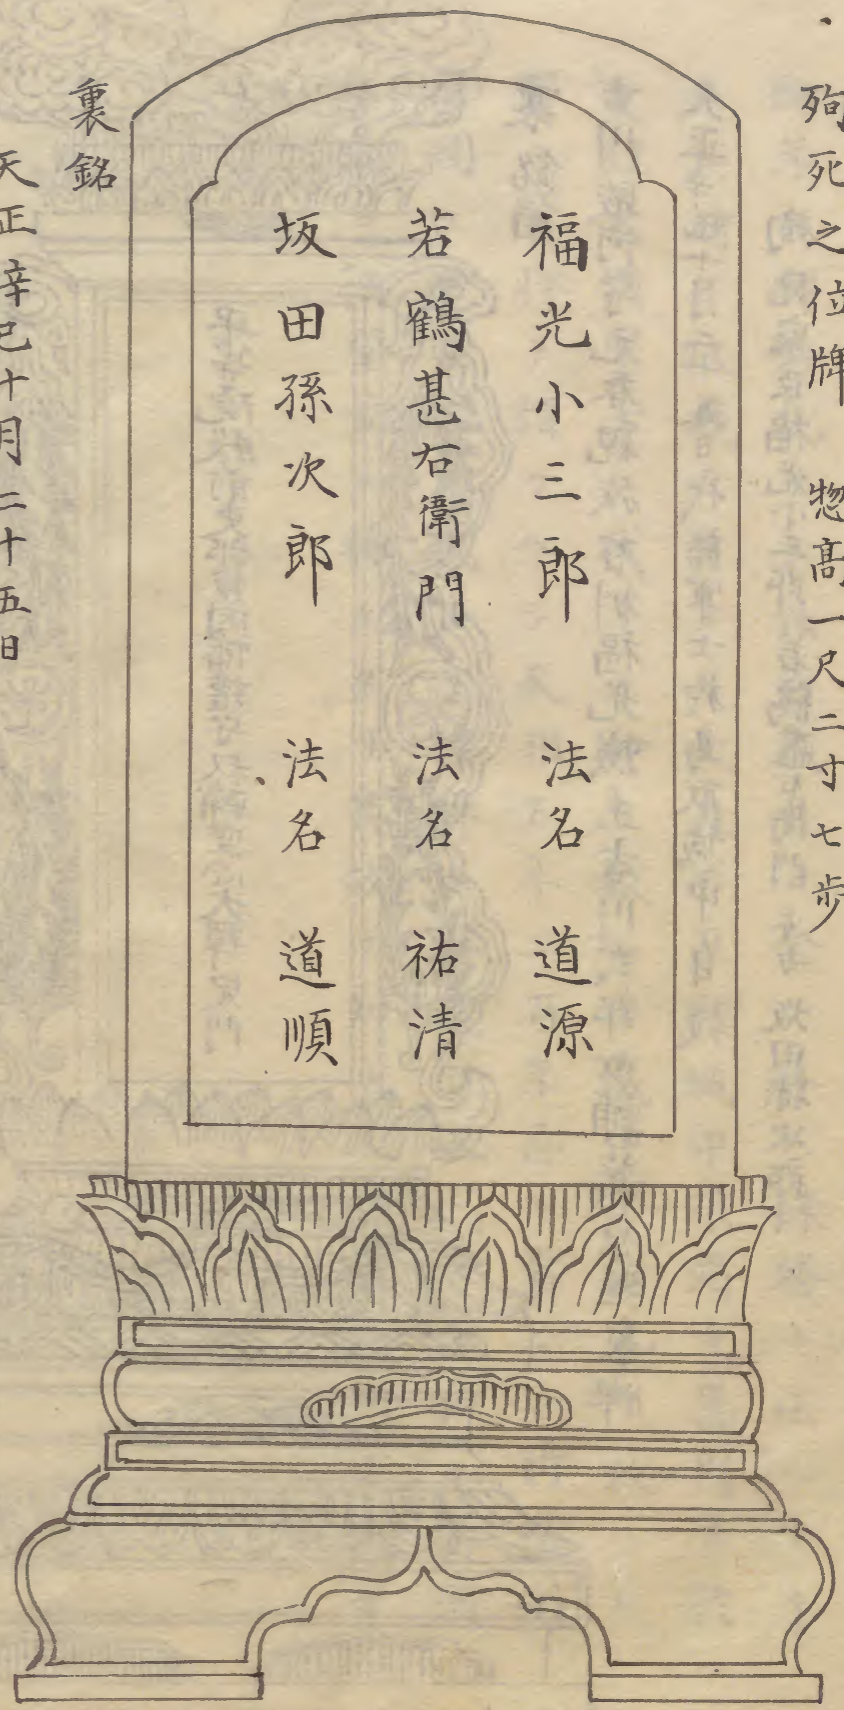 殉死之位牌　惣髙一尺二寸七歩
福光小三郎　法名　道源
若鶴甚右衛門　法名　祐清
坂田孫次郎　法名　道順
裏銘
天正辛巳十月二十五日